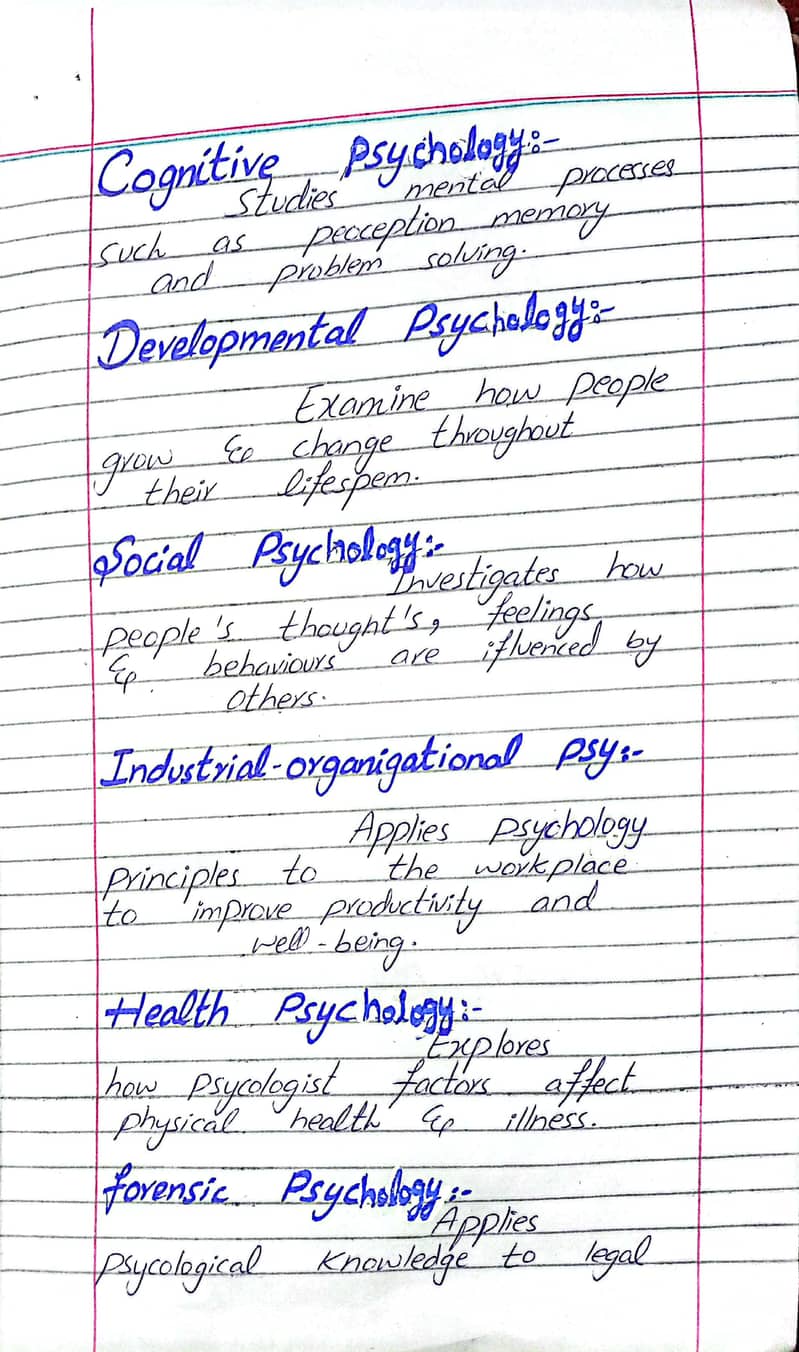 Cognitive Psychology:-
Studies mental processes
such as peception memory
and problem solving.
Developmental Psychology:-
Examine how people
grow & change throughout
their lifespem.
Social Psychology:-
Investigates how
people's thought's, feelings
& behaviours are ifluenced by
others.
Industrial-organigational psy:-
Applies psychology
principles to the workplace
to improve productivity and
well-being.
Health Psychology:-
Explores
how psycologist factors affect
physical health & illness.
forensic Psychology:-
Applies
psycological knowledge to legal